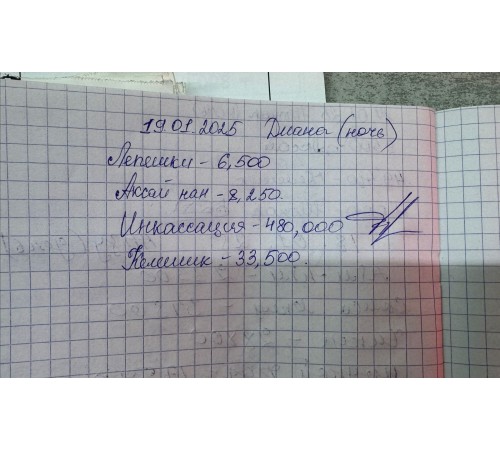 19.01.2025 Диана (ночь)
Лепешки - 6,500
Аксай нан - 8,250.
Инкассация - 480,000
- 33,500.